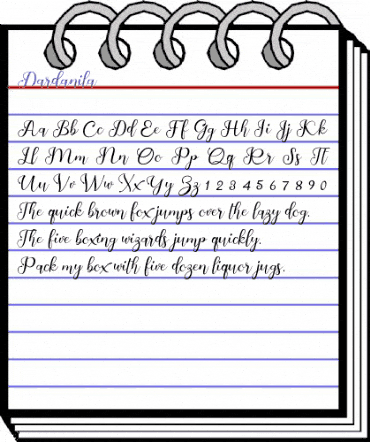 Dardanila
Aa Bb Cc Dd Ee Ff Gg Hh Ii Jj Kk
Ll Mm Nn Oo Pp Qq Rr Ss Tt
Uu Vv Ww Xx Yy Zz 1 2 3 4 5 6 7 8 9 0
The quick brown fox jumps over the lazy dog.
The five boxing wizards jump quickly.
Pack my box with five dozen liquor jugs.